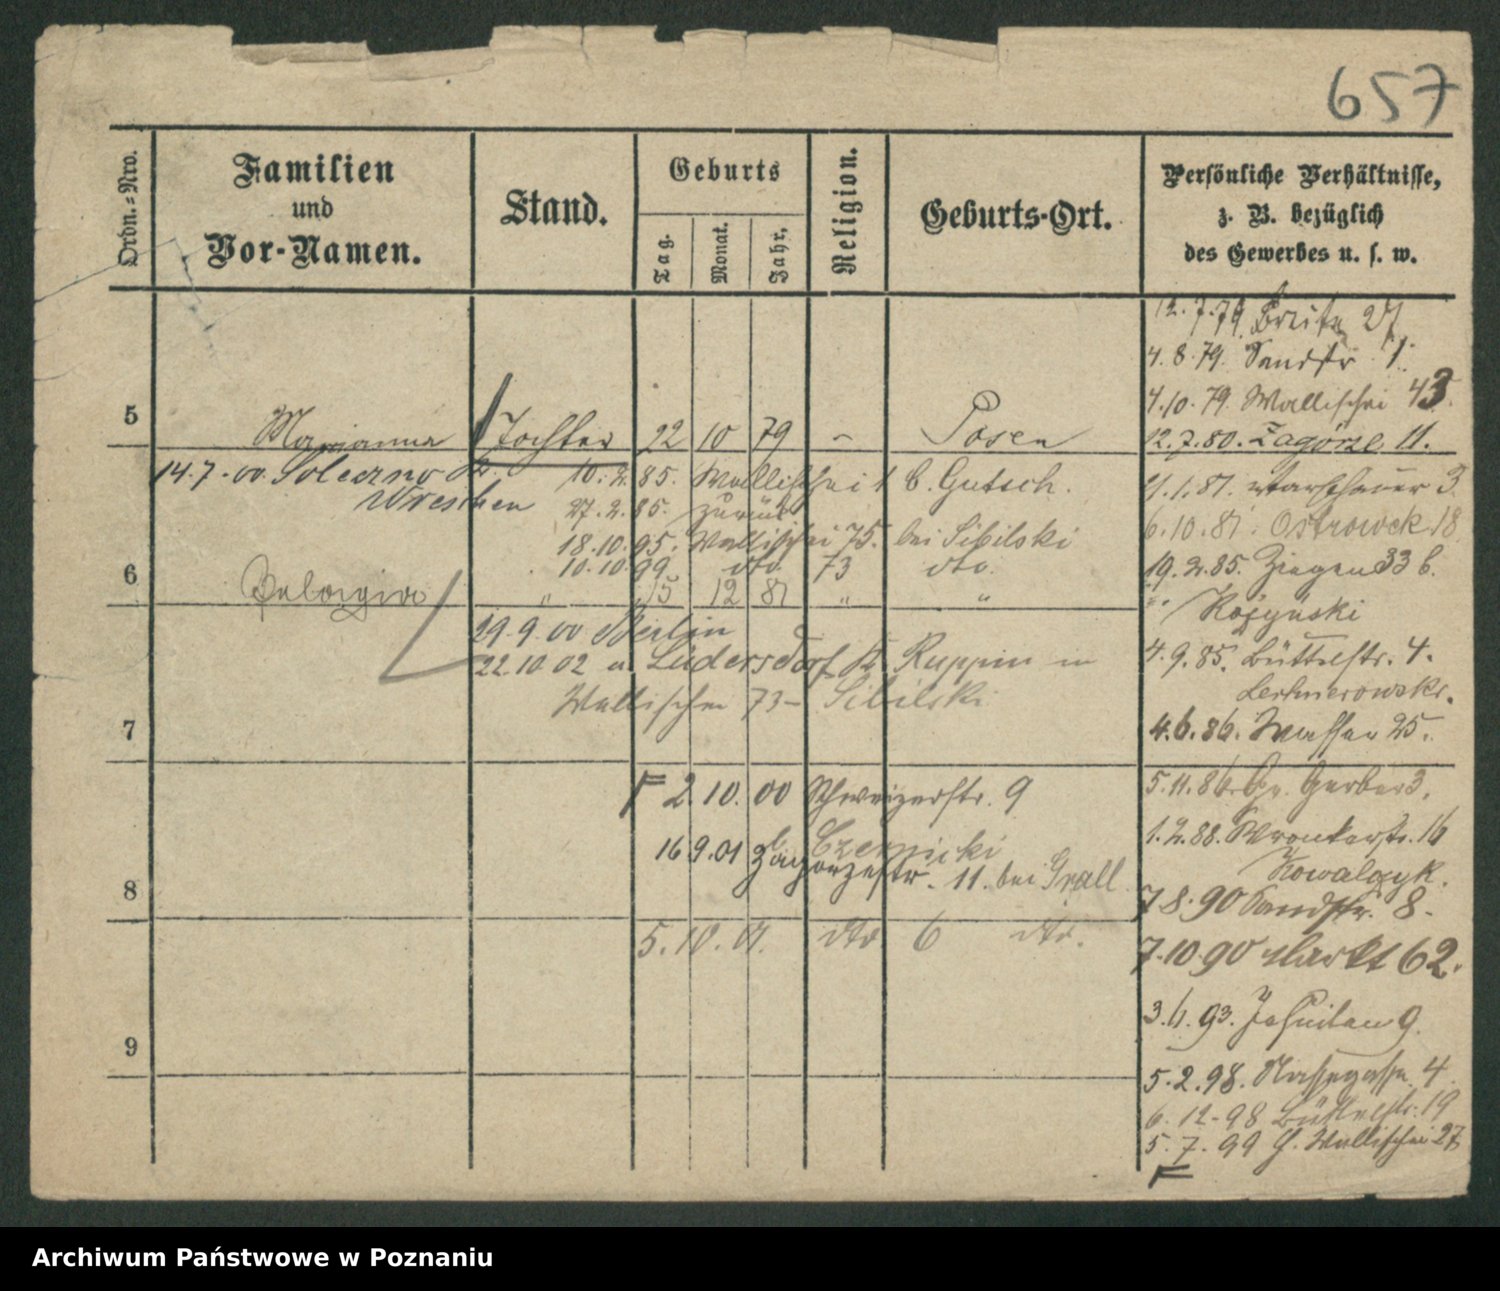 657
Ordn.-Nro.
Familien
und
Vor-Namen.
Stand.
Geburts
Tag.
Monat.
Jahr,
Religion.
Geburts-Ort.
Persönliche Verhältnisse,
z. B. bezüglich
des Gewerbes u. s. w.
12.7.79. Breite 27
4.8.79. Sandstr. 1.
4.10.79. Wallischei 43.
5 Marianna Tochter 22 10 79 – Posen
12.7.80. Zagórze 11.
14.7.00. Soleczno Kr.
Wreschen
10.2.85. Wallischei 1 b. Gutsch.
27.2.85. zurück
18.10.95. Wallischei 75. bei Sibilski
10.10.99 dto. 73 dto.
6 Pelagia " 15 12 81 " "
21.1.81. Warschauer 3.
6.10.81. Ostrowek 18.
19.2.85. Ziegen 33 b.
29.9.00 Berlin
22.10.02 a. Lüdersdorf Kr. Ruppin in
Wallischei 73 – Sibilski
4.9.85. Büttelstr. 4.
4.6.86. Wasser 25.
7
F 2.10.00 Schweizerstr. 9
b. Czernicki
16 9.01 Zagorzestr. 11. bei Grall
5.11.86. Gr. Gerber 3.
1.2.88. Wronkerstr. 16
Kowalczyk.
7 8.90 Sandstr. 8.
8
5.10.01. dto 6 dto.
7.10.90 Markt 62.
3.6.93. Jesuiten 9.
9
5.2.98. Nassegasse 4
6.12.98 Büttelstr. 19
5.7.99 Wallischei 27
F
Archiwum Państwowe w Poznaniu